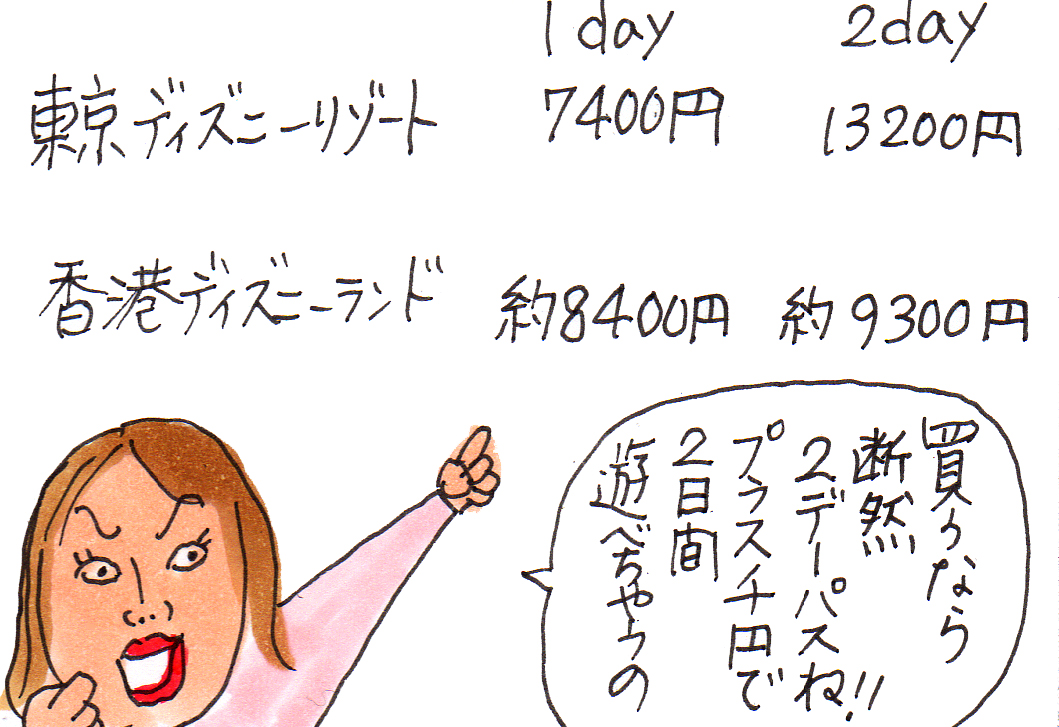 1day 2day
東京ディズニーリゾート 7400円 13200円
香港ディズニーランド 約8400円 約9300円
買うなら
断然
2デーパスね!!
プラス千円で
2日間
遊べちゃうの